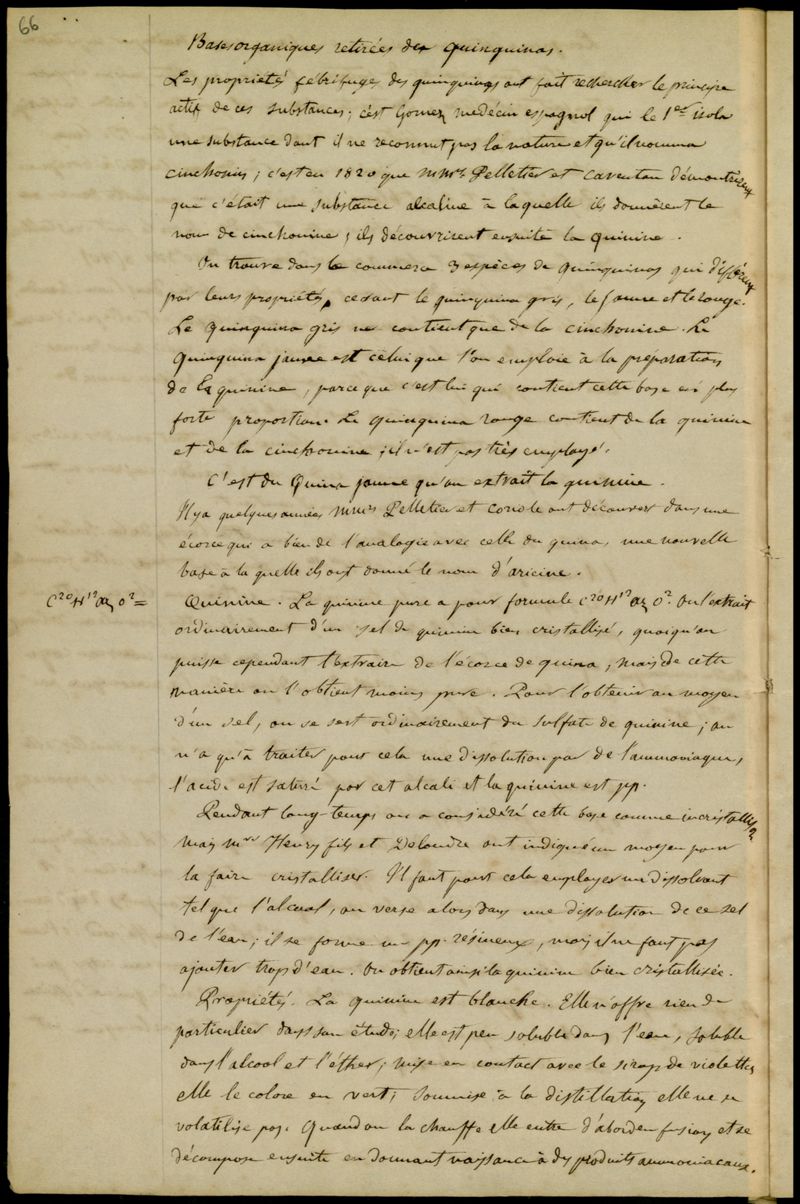 66
Bases organiques retirées des quinquinas.
Les propriétés fébrifuges des quinquinas ont fait rechercher le principe
actif de ces substances; c'est Gomez médecin espagnol qui le 1er isola
une substance dont il ne reconnut pas la nature et qu'il nomma
cinchonin; c'est en 1820 que mmrs Pelletier et Caventou démontrèrent
que c'était une substance alcaline à laquelle ils donnèrent le
nom de cinchonine; ils découvrirent ensuite la quinine.
On trouve dans le commerce 3 espèces de quinquinas qui diffèrent
par leurs propriétés, ce sont le quinquina gris, le jaune et le rouge.
Le quinquina gris ne contient que de la cinchonine. Le
quinquina jaune est celui que l'on emploie à la préparation
de la quinine, parce que c'est lui qui contient cette base en plus
forte proportion. Le quinquina rouge contient de la quinine
et de la cinchonine; il n'est pas très employé.
C'est du Quina jaune qu'on extrait la quinine.
Il y a quelques années mmrs Pelletier et ont découvert dans une
écorce qui a bien de l'analogie avec celle du quina, une nouvelle
base à laquelle ils ont donné le nom d'aricine.
C20H12az O2=
Quinine. La quinine pure a pour formule C20H12az O2. On l'extrait
ordinairement d'un sel de quinine bien cristallisé, quoiqu'on
puisse cependant l'extraire de l'écorce de quina; mais de cette
manière on l'obtient moins pure. Pour l'obtenir au moyen
d'un sel, on se sert ordinairement du sulfate de quinine; on
n'a qu'à traiter pour cela une dissolution par de l'ammoniaque,
l'acide est saturé par cet alcali et la quinine est pp.
Pendant long-temps on a considéré cette base comme incristallisable
mais mrs Henry fils et Delondre ont indiqué un moyen pour
la faire cristalliser. Il faut pour cela employer un dissolvant
tel que l'alcool, on verse alors dans une dissolution de ce sel
de l'eau; il se forme un pp. résineux, mais il ne faut pas
ajouter trop d'eau. On obtient ainsi la quinine bien cristallisée.
Propriétés. La quinine est blanche. Elle n'offre rien de
particulier dans son étude; elle est peu soluble dans l'eau, soluble
dans l'alcool et l'éther; mise en contact avec le sirop de violettes
elle le colore en vert; soumise à la distillation, elle ne se
volatilise pas. Quand on la chauffe elle entre d'abord en fusion et se
décompose ensuite en donnant naissance à des produits ammoniacaux.